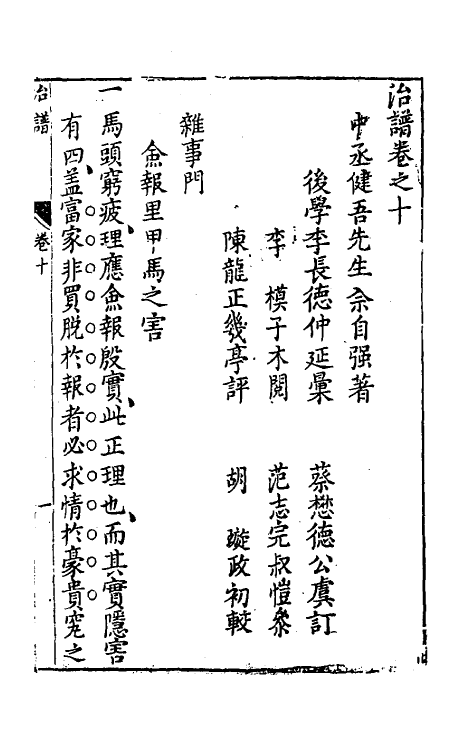 治譜卷之十
中丞健吾先生佘自强著
後學李長德仲延彙　蔡懋德公虞訂
李　模子木閱　范志完叔愷叅
陳龍正幾亭評　胡　璇政初較
雜事門
僉報里甲馬之害
一馬頭窮疲理應僉報殷實此正理也而其實隱害
有四盖富家非買脱於報者必求情於豪貴究之
治譜　卷十　一